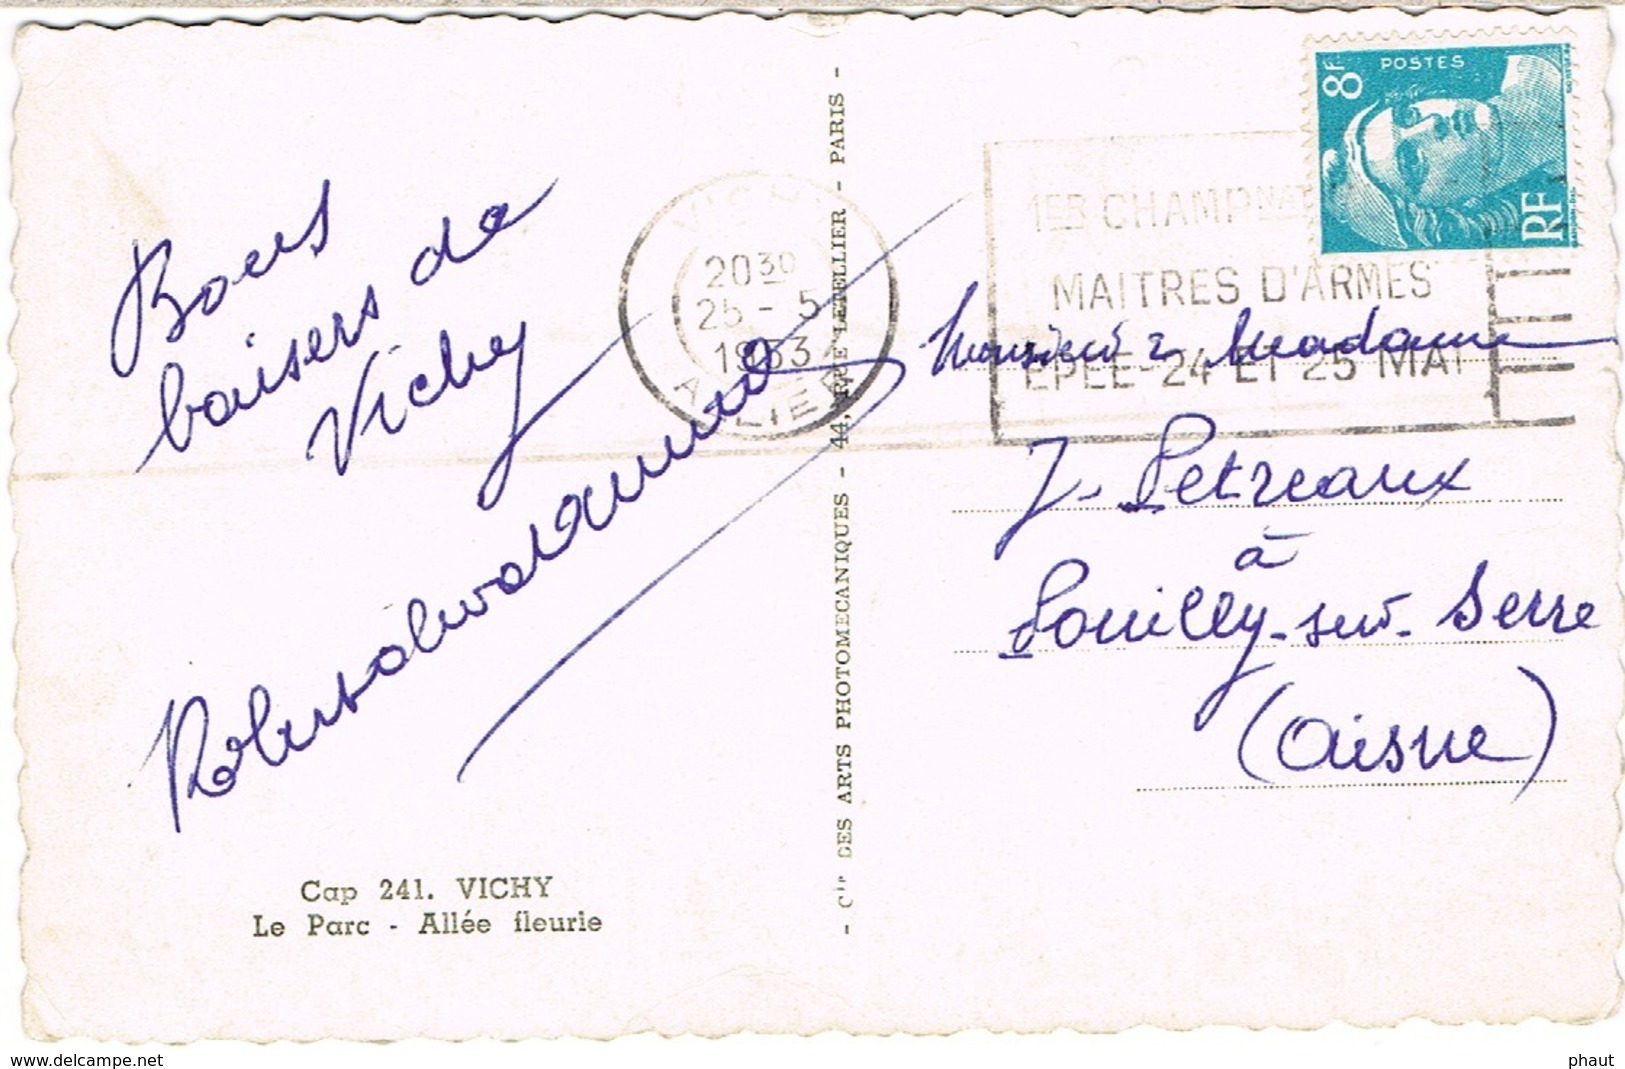 Bons
baisers de
Vichy
Cap 241. VICHY
Le Parc - Allée fleurie
- Cie DES ARTS PHOTOMECANIQUES - 44, RUE LETELLIER - PARIS -
VICHY
20 30
25 - 5
1953
ALLIER
1ER CHAMPNAT
MAITRES D'ARMES
EPEE - 24 ET 25 MAI
8F
POSTES
RF
Monsieur & Madame
J. Petreaux
à
Pouilly-sur-Serre
(Aisne)
www.delcampe.net
phaut